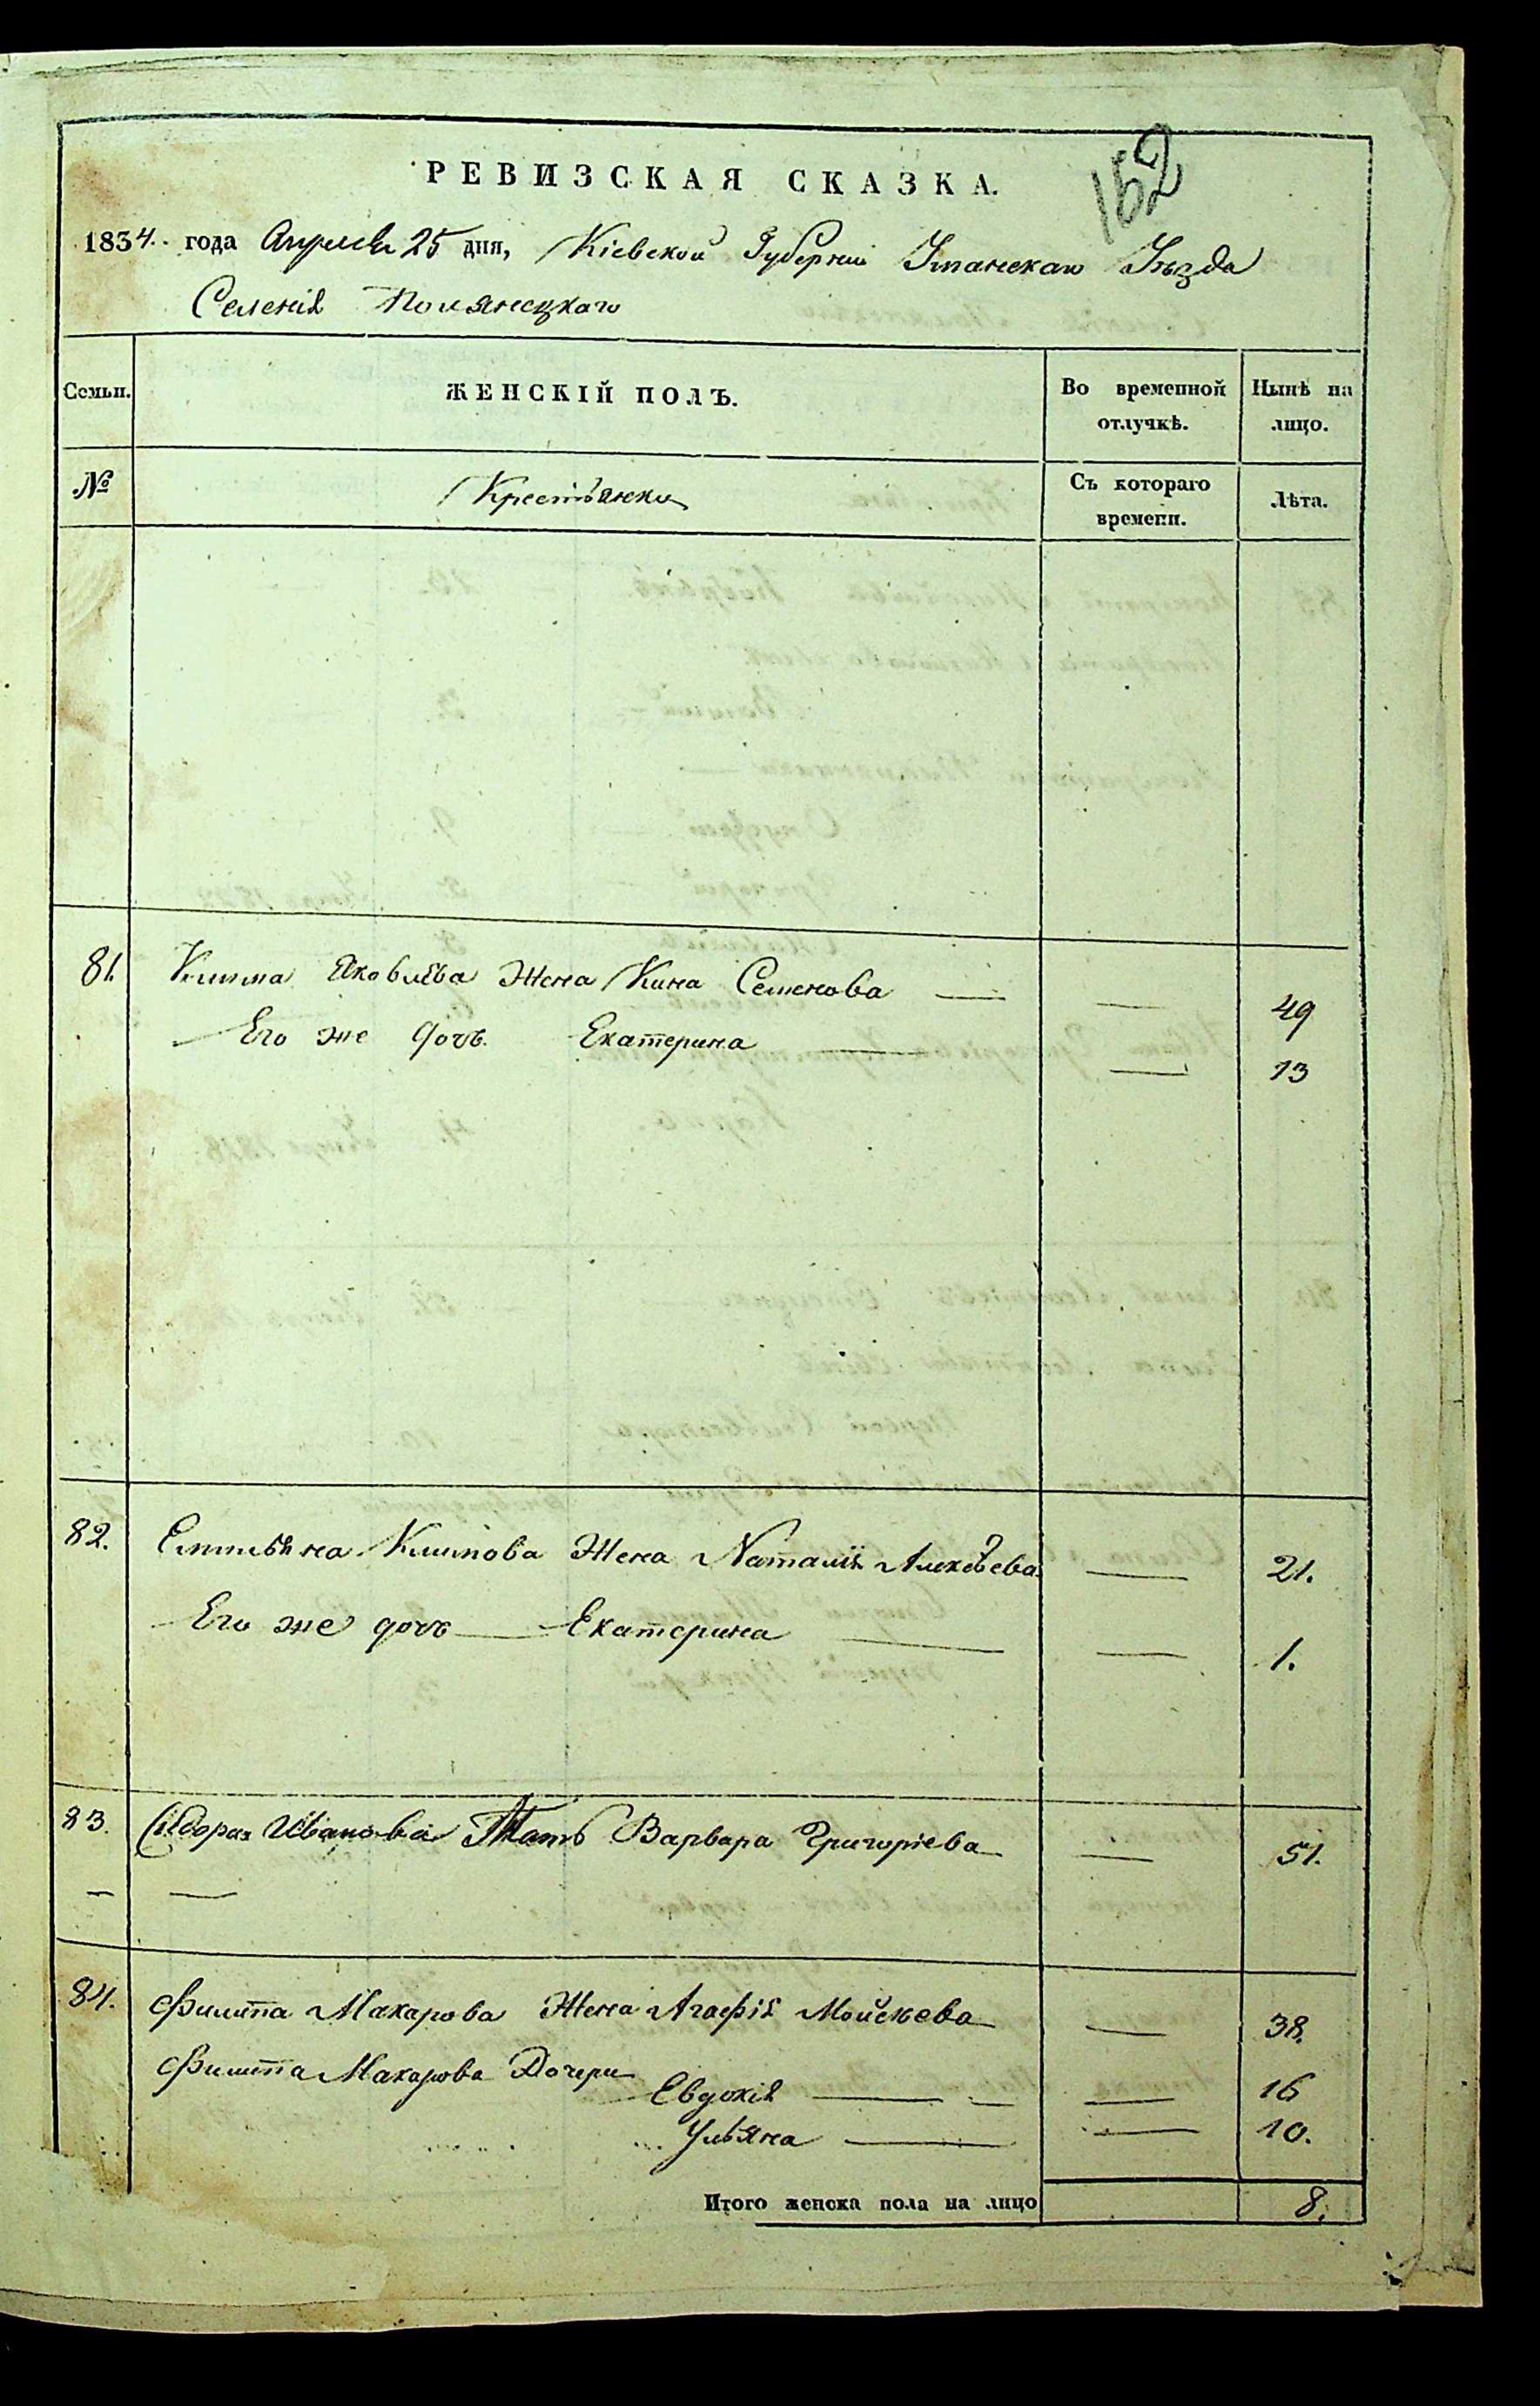 162
РЕВИЗСКАЯ СКАЗКА.
1834. года Апреля 25 дня, Кіевской Губерніи Уманскаго Уѣзда
Селенія Полянецкаго
Семьи. ЖЕНСКІЙ ПОЛЪ. Во временной отлучкѣ. Нынѣ на лицо.
№ Крестьянки Съ котораго времени. Лѣта.
81. Клима Яковлева Жена Кина Семенова — — 49
Его же дочь Екатерина — — 13
82. Емильяна Климова Жена Наталія Алексѣева — 21.
Его же дочь — Екатерина — — 1.
83. Сидора Иванова Мать Варвара Григоріева — 51.
— —
84. Филипа Макарова Жена Агафія Мойсѣева — 38.
Филипа Макарова Дочери
Евдокія — — — 16
Ульяна — — 10.
Итого женска пола на лицо 8.